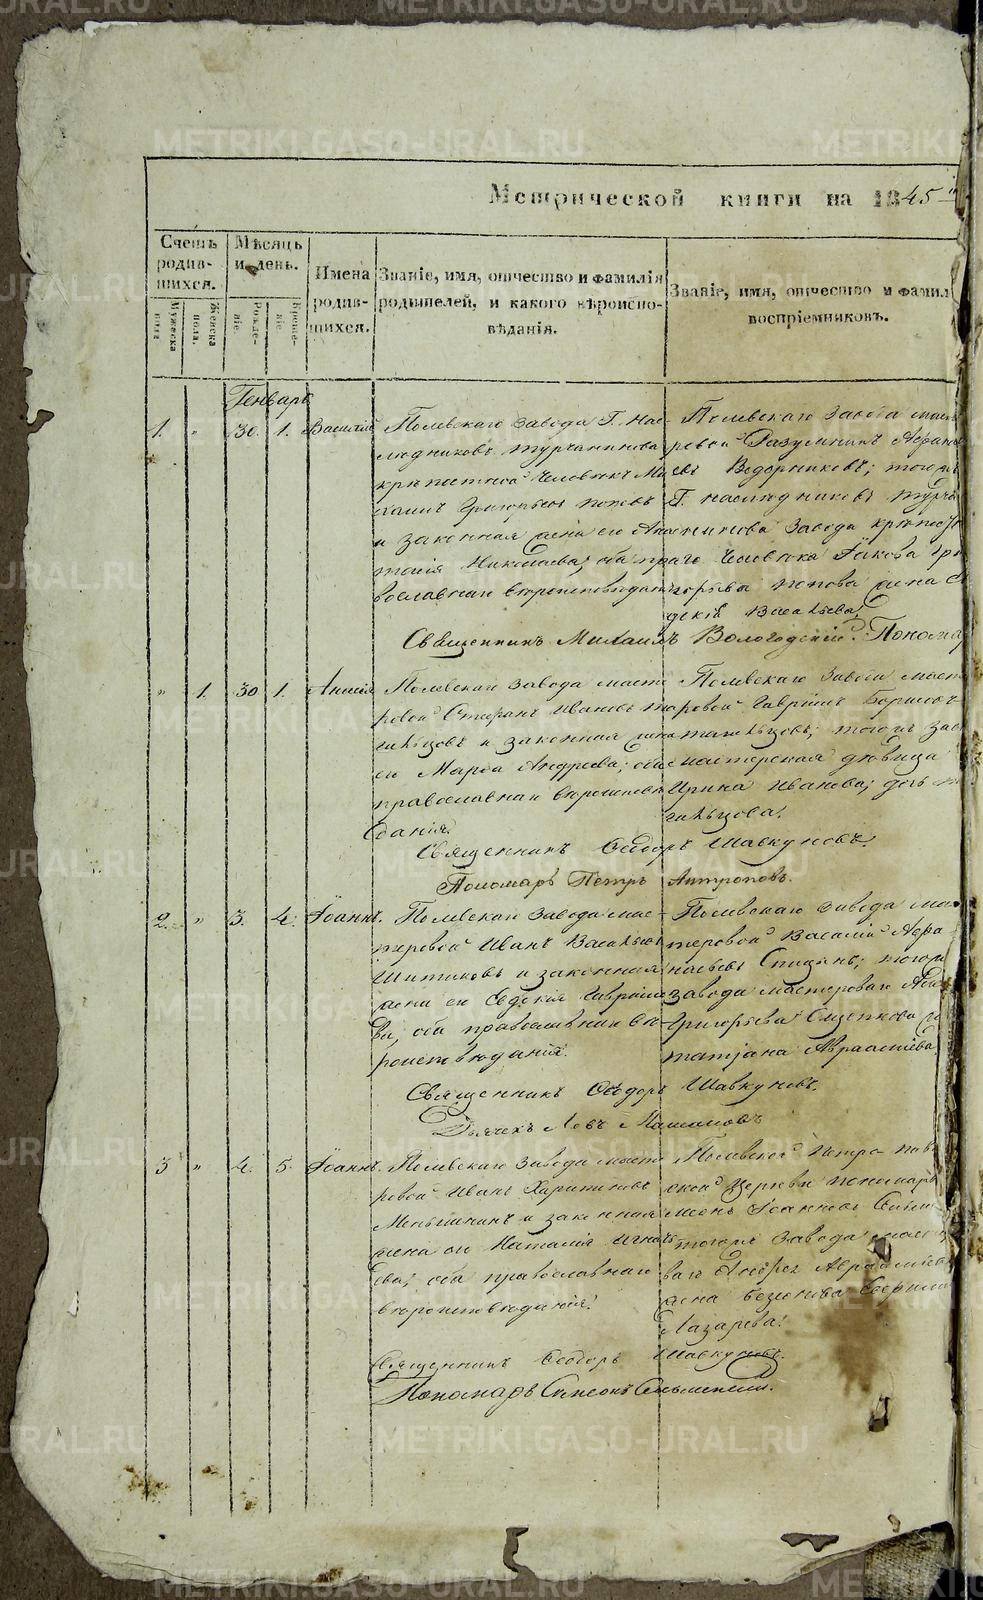 Метрической книги на 1845
Счетъ родив- шихся.
Мѣсяцъ и день.
Имена родив- шихся.
Званіе, имя, отчество и фамилія родителей, и какого вѣроиспо- вѣданія.
Званіе, имя, отчество и фамил воспріемниковъ.
Мужеска пола
Женска пола.
Рожде- ніе.
Креще- ніе
Генварь
1. " 30. 1. Василій
Полевскаго завода Г. Нас-
лѣдниковъ Турчанинова
крѣпостной человѣкъ Ми
хаилъ Григорьевъ Поповъ
и законная жена его Ана
тасія Николаева; оба пра
вославнаго вѣроисповѣданія
Полевскаго завода масте
ровой Разумникъ Афана
евъ Ведерниковъ; тогожъ
Г. наслѣдниковъ Турча
нинова завода крѣпост
наго человѣка Іакова Гри
горьева Попова жена
Васильева
Священникъ Михаилъ Вологодскій. Понома
" 1. 30 1. Анисія
Полевскаго завода масте
ровой Стефанъ Ивановъ
и законная жена
его Марѳа Андреева; оба
православнаго вѣроисповѣ
данія.
Полевскаго завода масте
ровой Гавріилъ Борисовъ
тогожъ зав
мастерская дѣвица
Ирина Иванова; дочь
Священникъ Ѳеодоръ Шавкуновъ.
Пономарь Петръ Антроповъ.
2. " 3. 4. Іоаннъ.
Полевскаго завода мас-
теровой Иванъ Васильевъ
Шитиковъ и законная
жена его Евдокія Гаврило
ва, оба православнаго вѣ-
роисповѣданія.
Полевскаго завода мас
теровой Василій Афа
насьевъ Спицынъ; тогожъ
завода мастероваго
Григорьева
Татіана Аврааміева
Священникъ Ѳеодоръ Шавкуновъ.
Дьячекъ Левъ
3 " 4. 5. Іоаннъ.
Полевскаго завода масте
ровой Иванъ Харитоновъ
Меньшикинъ и законная
жена его Наталія Игнать
ева; оба православнаго
вѣроисповѣданія.
Полевской Петро-Пав
ской церкви пономарь
Іоанновъ
тогожъ завода масте
ваго Андрея Аврааміева
жена
Лазарева.
Священникъ Ѳеодоръ Шавкуновъ.
Пономарь Симеонъ
METRIKI.GASO-URAL.RU